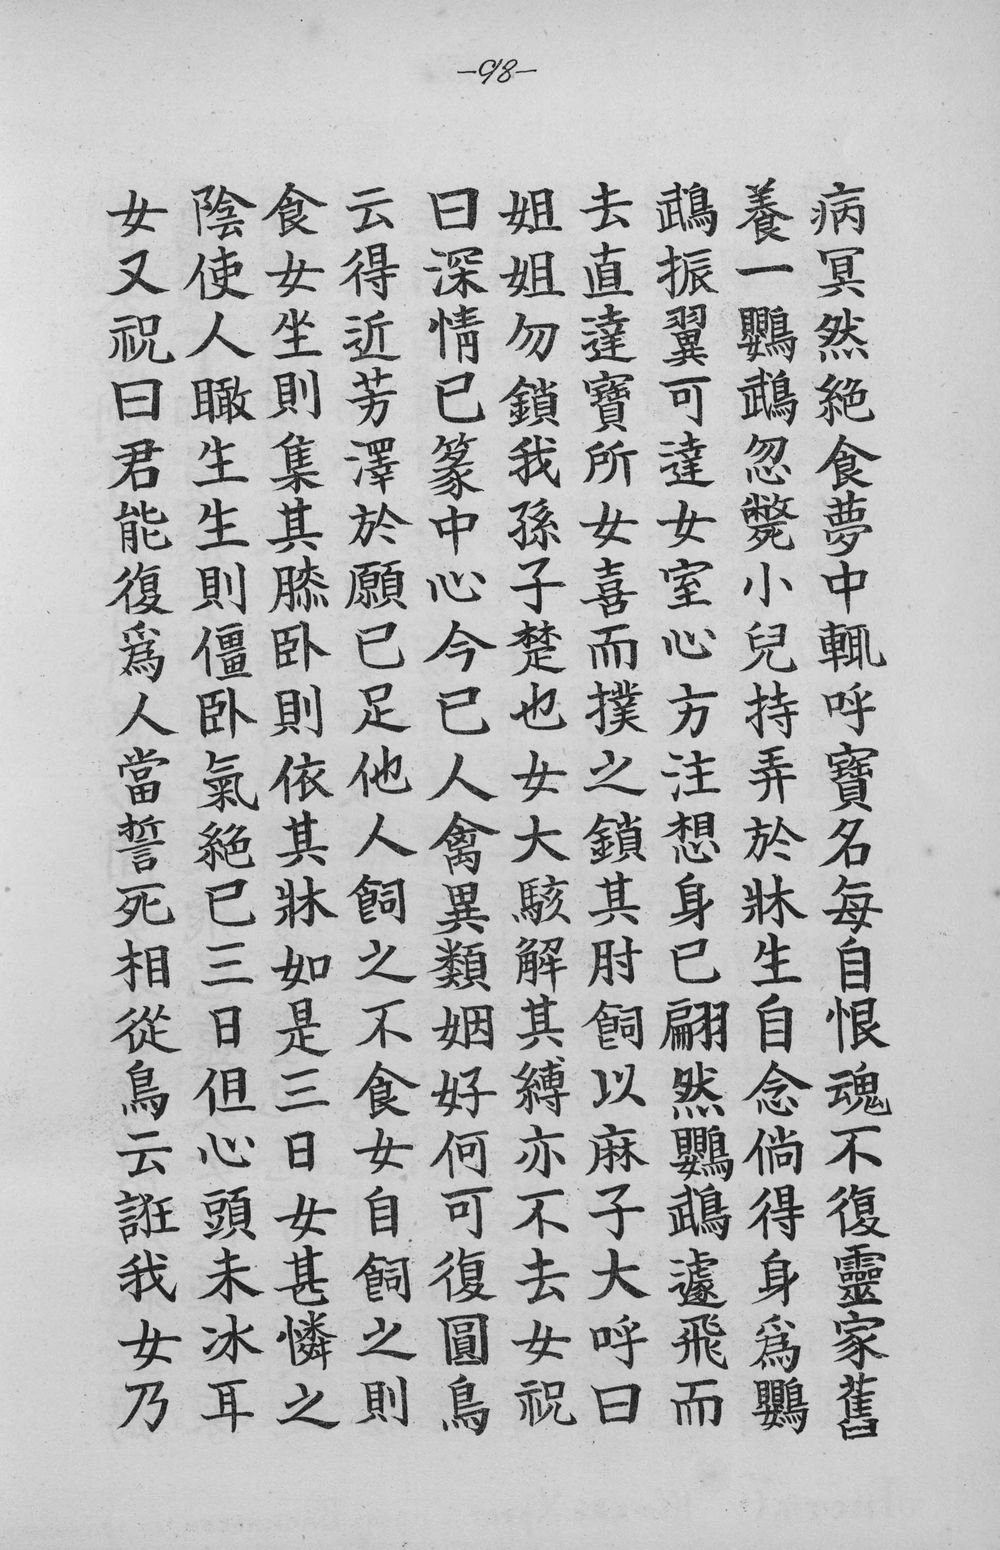 -98-
病冥然絶食夢中輒呼寶名每自恨魂不復靈家舊
養一鸚鵡忽斃小兒持弄於牀生自念倘得身爲鸚
鵡振翼可達女室心方注想身已翩然鸚鵡遽飛而
去直達寶所女喜而撲之鎖其肘飼以麻子大呼曰
姐姐勿鎖我孫子楚也女大駭解其縛亦不去女祝
曰深情已篆中心今已人禽異類姻好何可復圓鳥
云得近芳澤於願已足他人飼之不食女自飼之則
食女坐則集其膝卧則依其牀如是三日女甚憐之
陰使人瞰生生則僵卧氣絶已三日但心頭未冰耳
女又祝曰君能復爲人當誓死相從鳥云誑我女乃